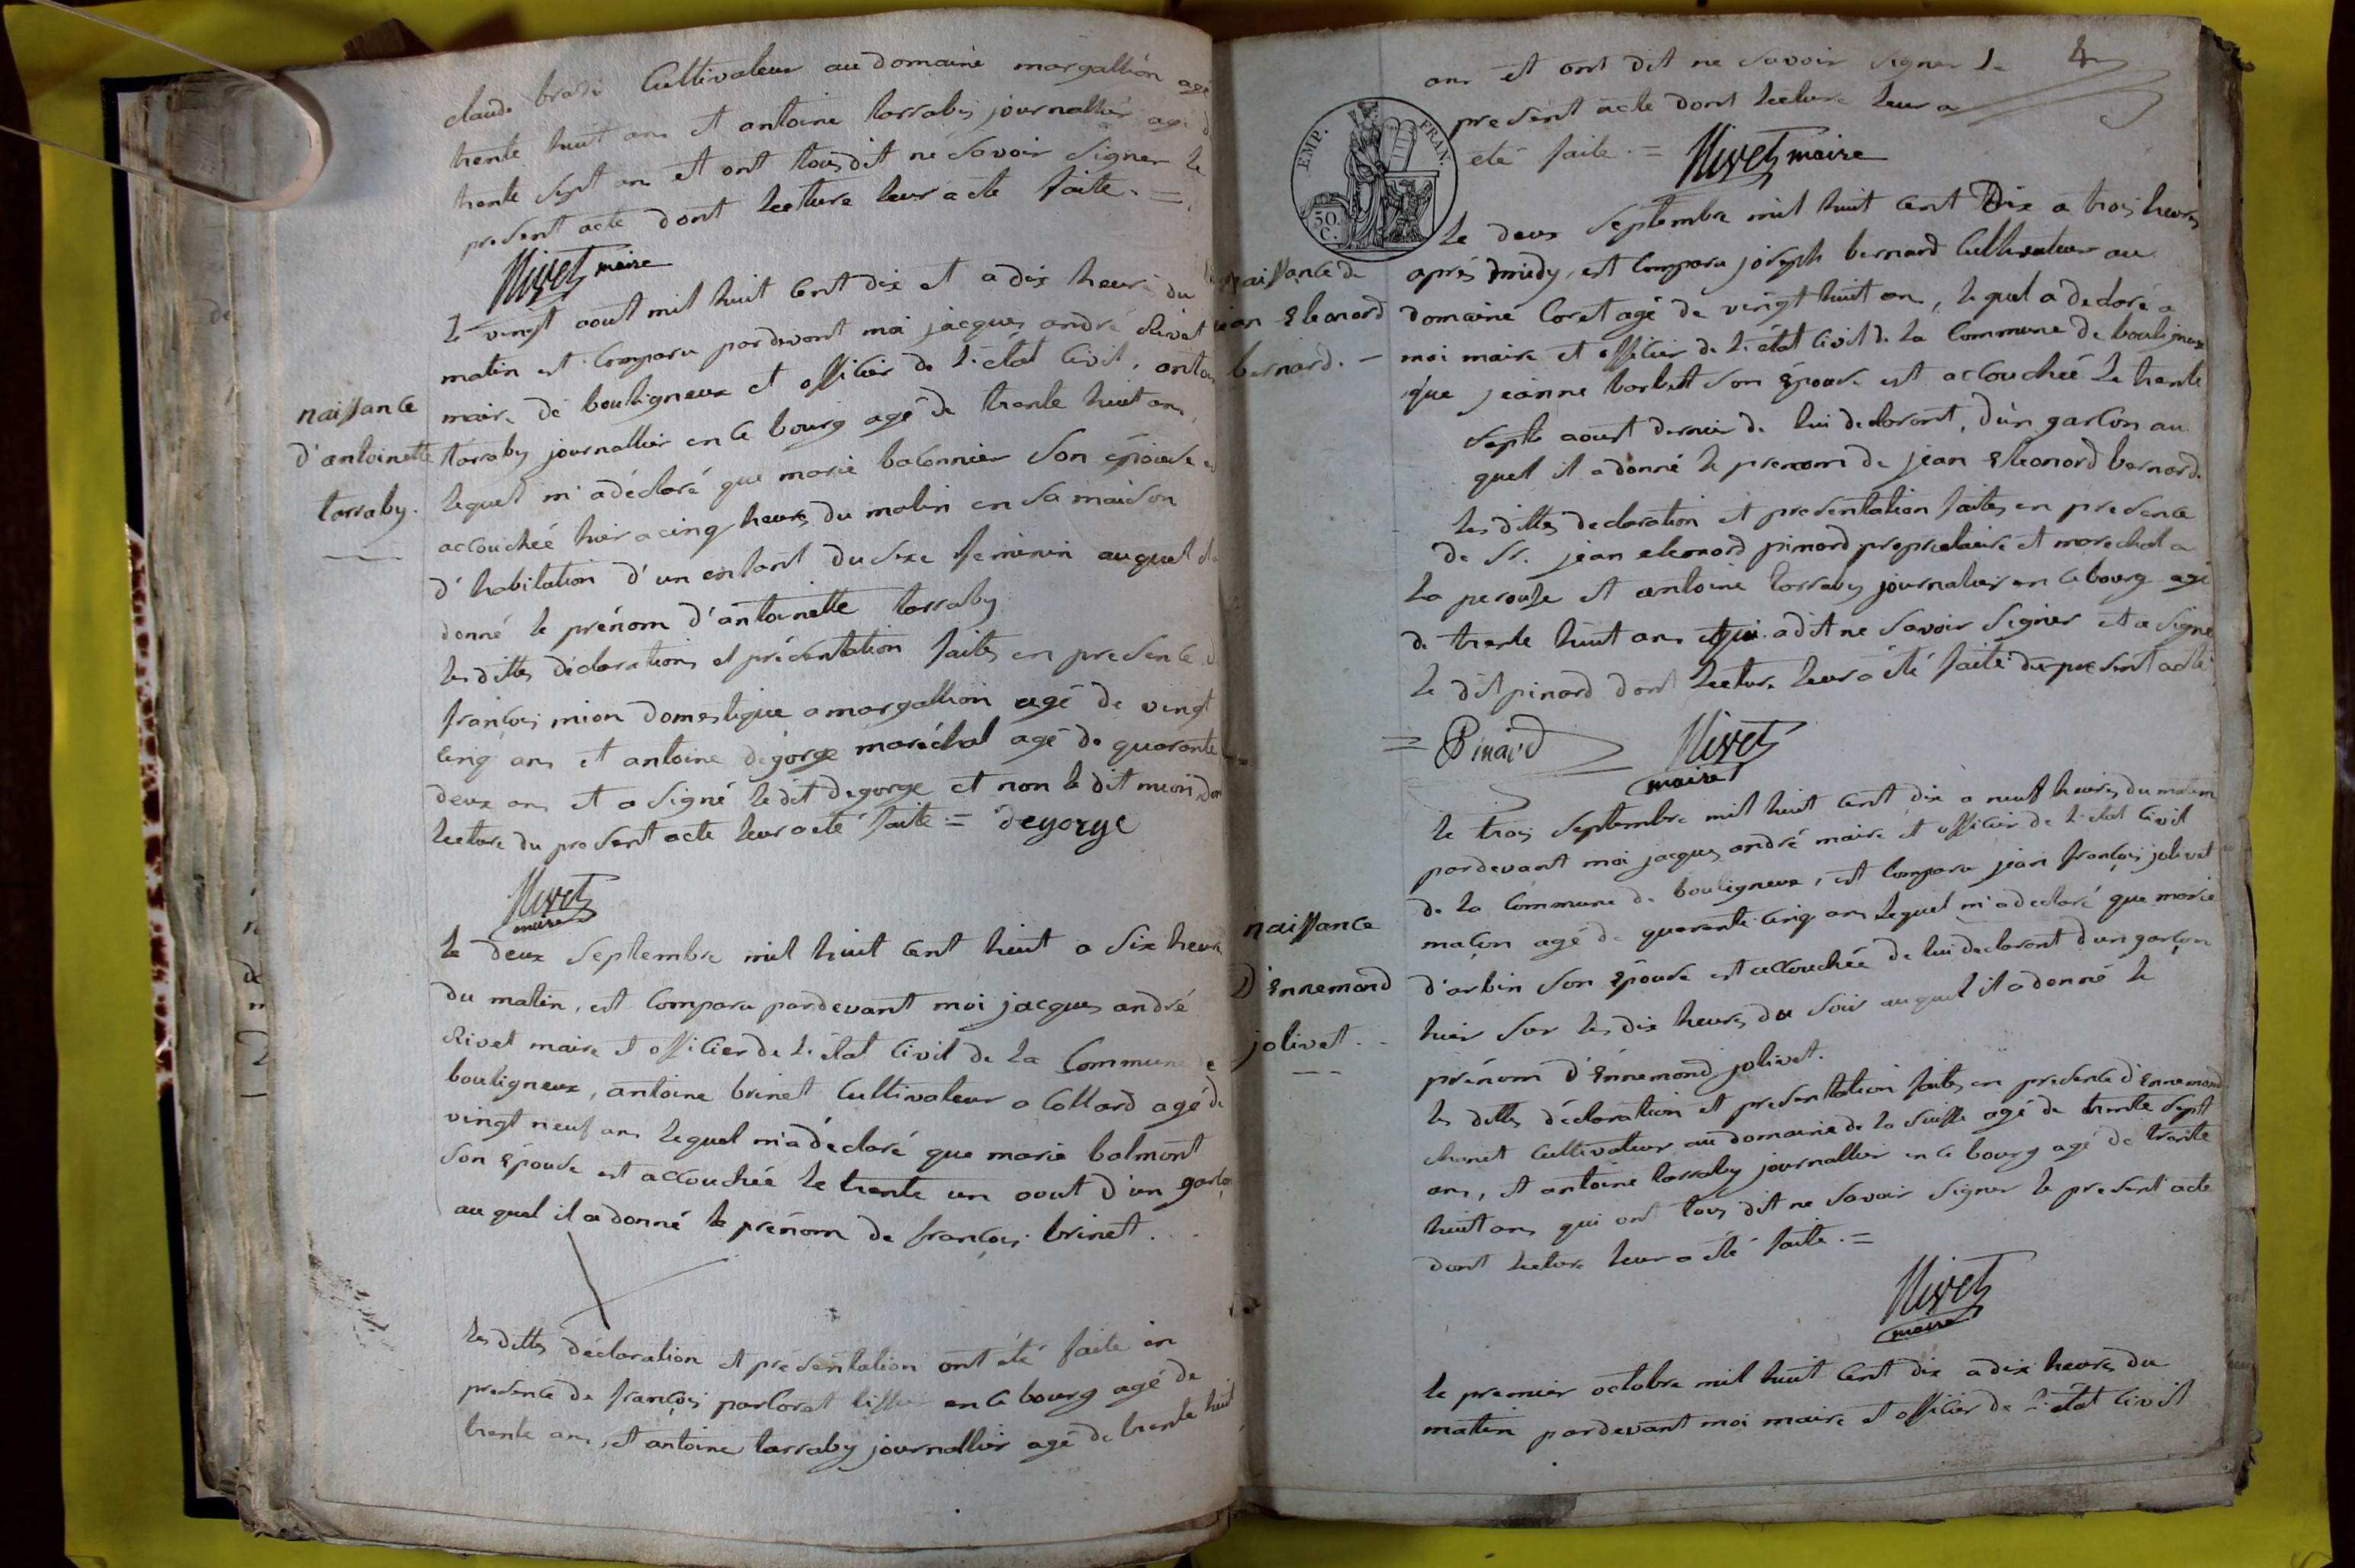 claude cultivateur au domaine margallion agé
trente huit ans et antoine tarraby journallier agé d
trente sept ans et ont tous dit ne savoir signer le
present acte dont lecture leur a été faite. =
Rivet maire
naissance
d'antoinette
tarraby.
le vingt aout mil huit cent dix et a dix heures du
matin est comparu pardevant moi jacques andré Rivet
maire de bouligneux et officier de l'état civil, antoi
tarraby journallier en ce bourg agé de trente huit ans,
lequel m'a déclaré que marie baconnier son épouse e
accouchée hier a cinq heures du matin en sa maison
d'habitation d'un enfant du sexe feminin auquel il a
donné le prénom d'antoinette tarraby
les dittes déclarations et présentation faites en presence d
françois mion domestique a margallion agé de vingt
cinq ans et antoine degorge maréchal agé de quarante
deux ans et a signé le dit degorge et non le dit mion dont
lecture du present acte leur a été faite = degorge
Rivet
maire
le deux septembre mil huit cent huit a six heures
du matin, est comparu pardevant moi jacques andré
Rivet maire et officier de l'état civil de la commune de
bouligneux, antoine brinet cultivateur a collard agé de
vingt neuf ans lequel m'a déclaré que marie balmont
son épouse est accouchée le trente un aout d'un garçon
au quel il a donné le prénom de françois brinet.
les dittes déclaration et présentation ont été faite en
presence de françois en ce bourg agé de
trente ans, et antoine tarraby journallier agé de trente huit
ans et ont dit ne savoir signer le
present acte dont lecture leur a
été faite. = Rivet maire
EMP. FRAN.
50
C.
naissance de
jean Eleonord
bernard. -
le deux septembre mil huit cent Dix a trois heures
après midy, est comparu joseph bernard cultivateur au
domaine Coret agé de vingt huit ans, lequel a declaré a
moi maire et officier de l'état civil de la commune de bouligneux
que jeanne barbet son épouse est accouchée le trente
sept aoust dernier de lui declarant, d'un garcon au
quel il a donné le prenom de jean Eleonord bernard.
les dittes declaration et presentation faites en presence
de Sr. jean eleonord pinard propriétaire et marechal a
la perouse et antoine tarraby journalier en ce bourg agé
de trente huit ans et qui a dit ne savoir signer et a signé
le dit pinard dont lecture leur a été faite du present acte
= Pinard Rivet
maire
naissance
D'Ennemond
jolivet.
le trois septembre mil huit cent dix a neuf heures du matin
pardevant moi jacques andré maire et officier de l'état civil
de la commune de bouligneux, est comparu jean françois jolivet
maçon agé de quarante cinq ans lequel m'a declaré que marie
d'arbin son épouse est accouchée de lui declarant d'un garçon
hier sur les dix heures du soir au quel il a donné le
prénom d'Ennemond jolivet.
les dittes déclaration et presentation faites en presence d'Ennemond
chanet cultivateur au domaine de la suisse agé de trente sept
ans, et antoine tarraby journallier en ce bourg agé de trente
huit ans qui ont tous dit ne savoir signer le present acte
dont lecture leur a été faite. =
Rivet
maire
le premier octobre mil huit cent dix a dix heures du
matin pardevant moi maire et officier de l'état civil